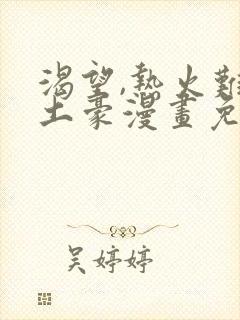 渴望,熱火難
土豪漫畫免
吳婷婷